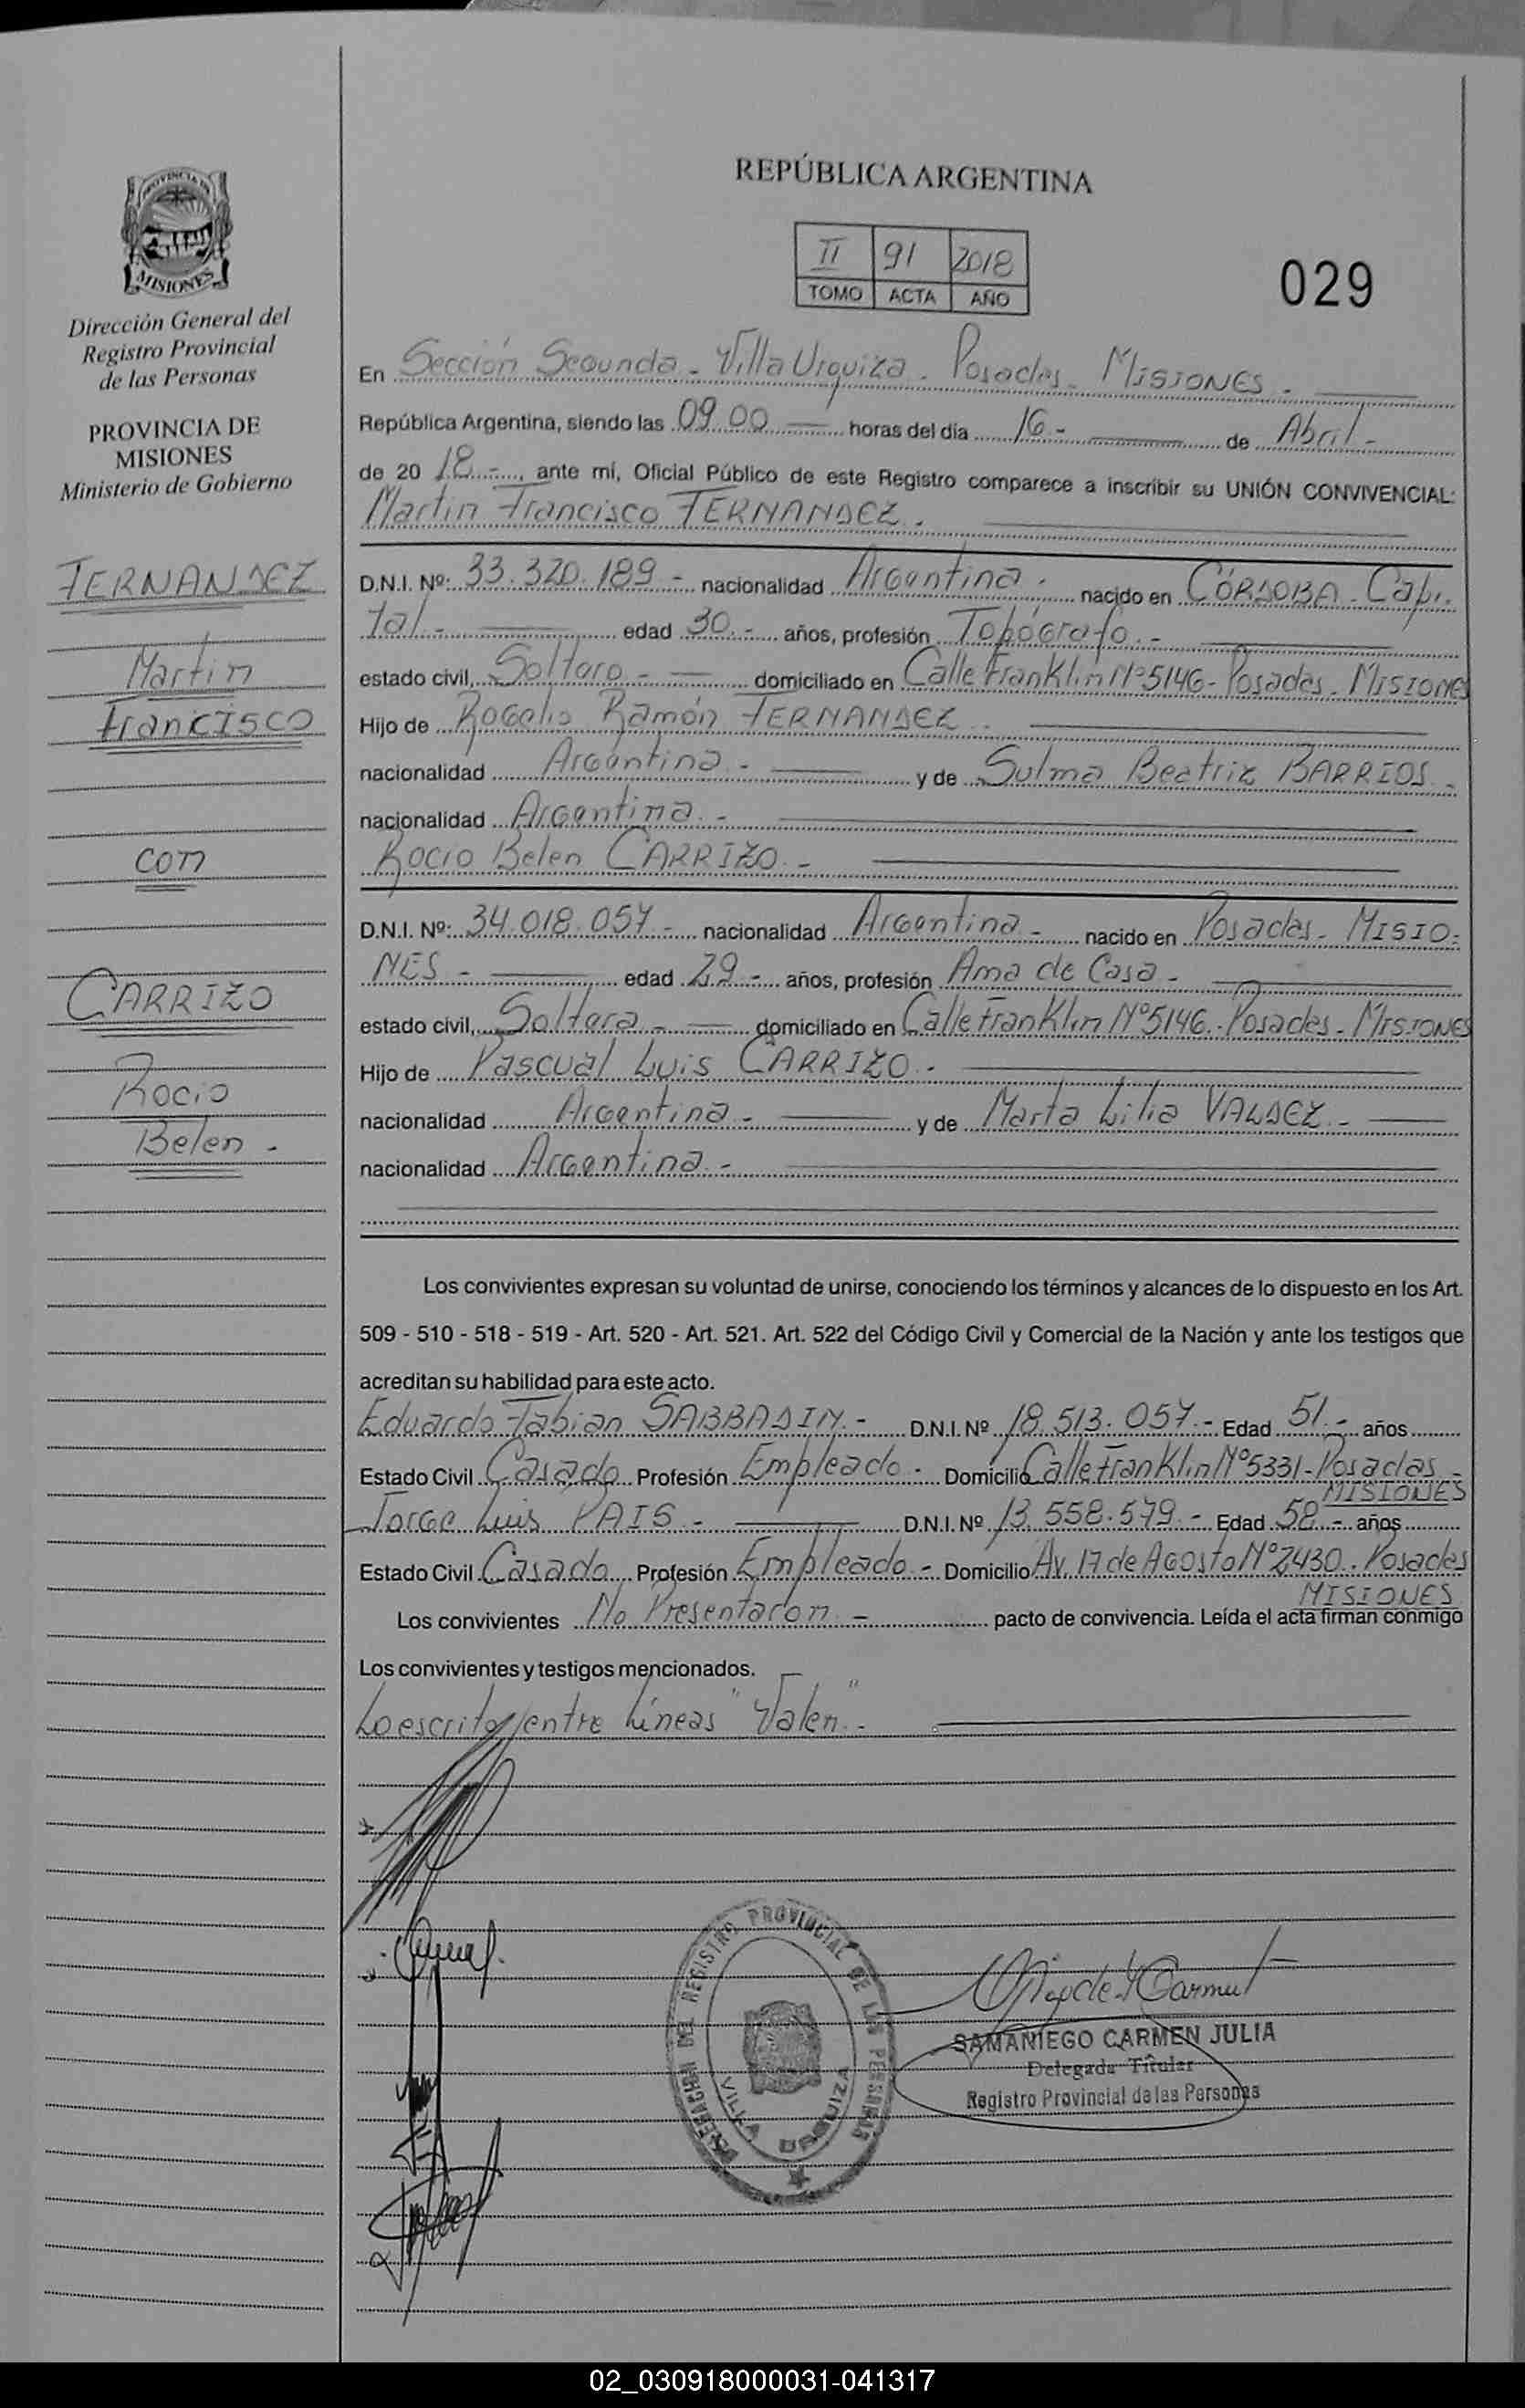 REPÚBLICA ARGENTINA
II 91 2018
TOMO ACTA AÑO
029
PROVINCIA DE
MISIONES
Dirección General del
Registro Provincial
de las Personas
PROVINCIA DE
MISIONES
Ministerio de Gobierno
FERNANDEZ
Martin
Francisco
con
CARRIZO
Rocio
Belen -
En Sección Segunda - Villa Urquiza - Posadas - MISIONES -
República Argentina, siendo las 09.00 horas del día 16 - de Abril -
de 20 18 - , ante mí, Oficial Público de este Registro comparece a inscribir su UNIÓN CONVIVENCIAL:
Martin Francisco FERNANDEZ -
D.N.I. Nº: 33.320.189 - nacionalidad Argentina - nacido en CÓRDOBA - Capi-
tal - edad 30 - años, profesión Topógrafo -
estado civil, Soltero - domiciliado en Calle Franklin Nº 5146 - Posadas - MISIONES
Hijo de Rogelio Ramón FERNANDEZ -
nacionalidad Argentina - y de Sulma Beatriz BARRIOS -
nacionalidad Argentina -
Rocio Belen CARRIZO -
D.N.I. Nº: 34.018.057 - nacionalidad Argentina - nacido en Posadas - MISIO-
NES - edad 29 - años, profesión Ama de Casa -
estado civil, Soltera - domiciliado en Calle Franklin Nº 5146 - Posadas - MISIONES
Hijo de Pascual Luis CARRIZO -
nacionalidad Argentina - y de Marta Lilia VALDEZ -
nacionalidad Argentina -
Los convivientes expresan su voluntad de unirse, conociendo los términos y alcances de lo dispuesto en los Art.
509 - 510 - 518 - 519 - Art. 520 - Art. 521. Art. 522 del Código Civil y Comercial de la Nación y ante los testigos que
acreditan su habilidad para este acto.
Eduardo Fabian SABBADIN - D.N.I. Nº 18.513.057 - Edad 51 - años
Estado Civil Casado Profesión Empleado - Domicilio Calle Franklin Nº 5331 - Posadas -
MISIONES
Jorge Luis PAIS - D.N.I. Nº 13.558.579 - Edad 58 - años
Estado Civil Casado Profesión Empleado - Domicilio Av. 17 de Agosto Nº 2430 - Posadas
MISIONES
Los convivientes No Presentaron - pacto de convivencia. Leída el acta firman conmigo
Los convivientes y testigos mencionados.
Lo escrito entre Líneas "Valen" -
DELEGACION DEL REGISTRO PROVINCIAL DE LAS PERSONAS
VILLA URQUIZA
SAMANIEGO CARMEN JULIA
Delegada Titular
Registro Provincial de las Personas
02_030918000031-041317